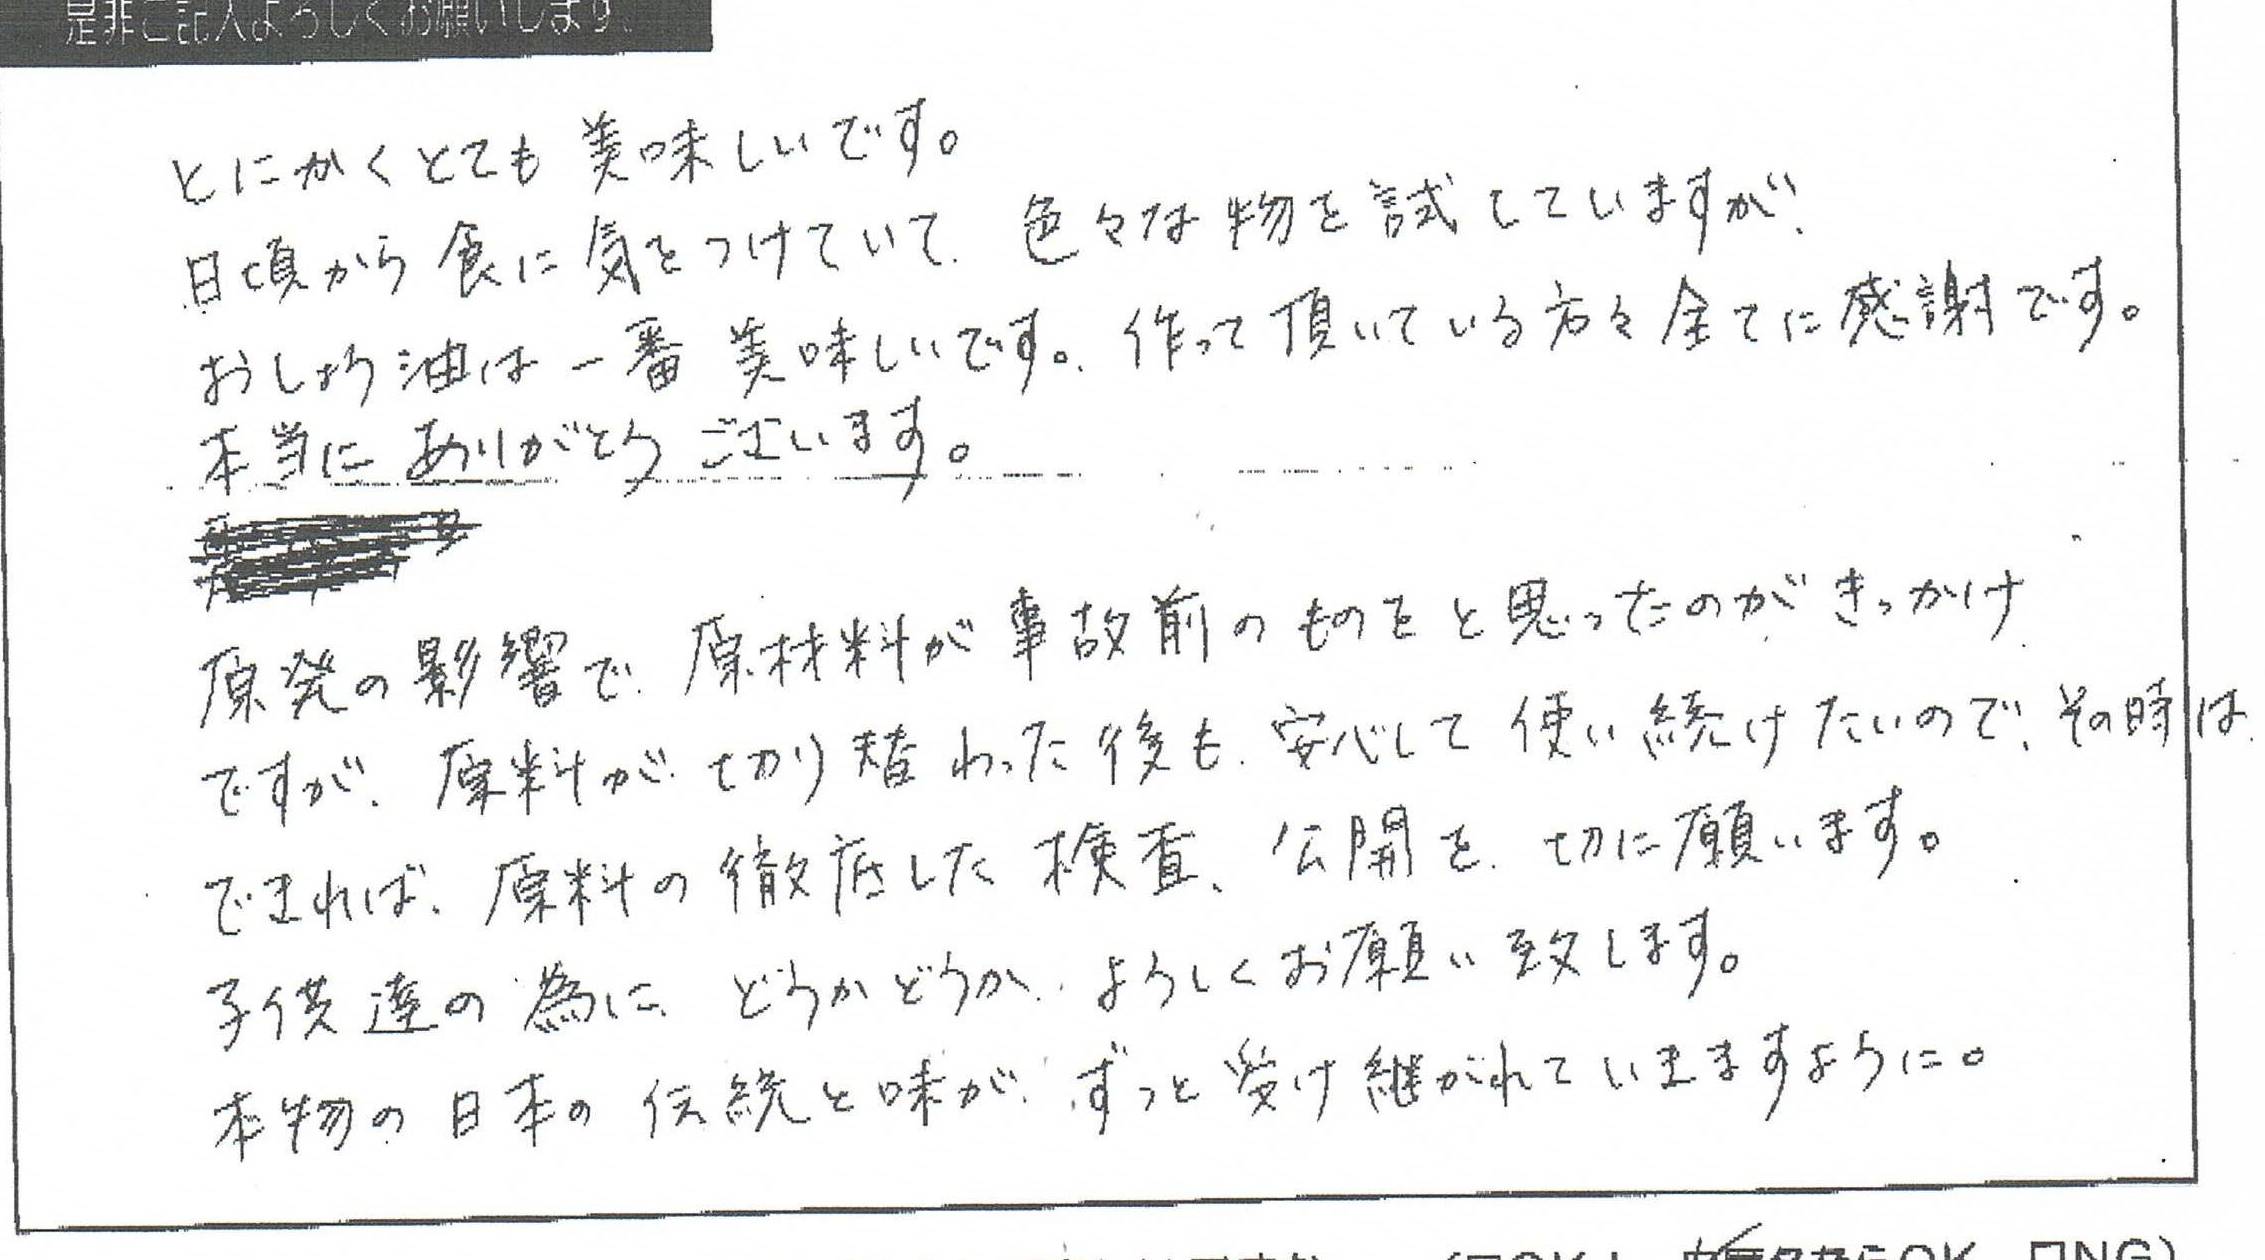 是非ご記入よろしくお願いします。
とにかくとても美味しいです。
日頃から食に気をつけていて、色々な物を試していますが、
おしょう油は一番美味しいです。作って頂いている方々全てに感謝です。
本当にありがとうございます。
原発の影響で、原材料が事故前のものをと思ったのがきっかけ
ですが、原料が切り替わった後も、安心して使い続けたいので、その時は、
できれば、原料の徹底した検査、公開を、切に願います。
子供達の為に、どうかどうか、よろしくお願い致します。
本物の日本の伝統と味が、ずっと受け継がれていきますように。
OK NG)